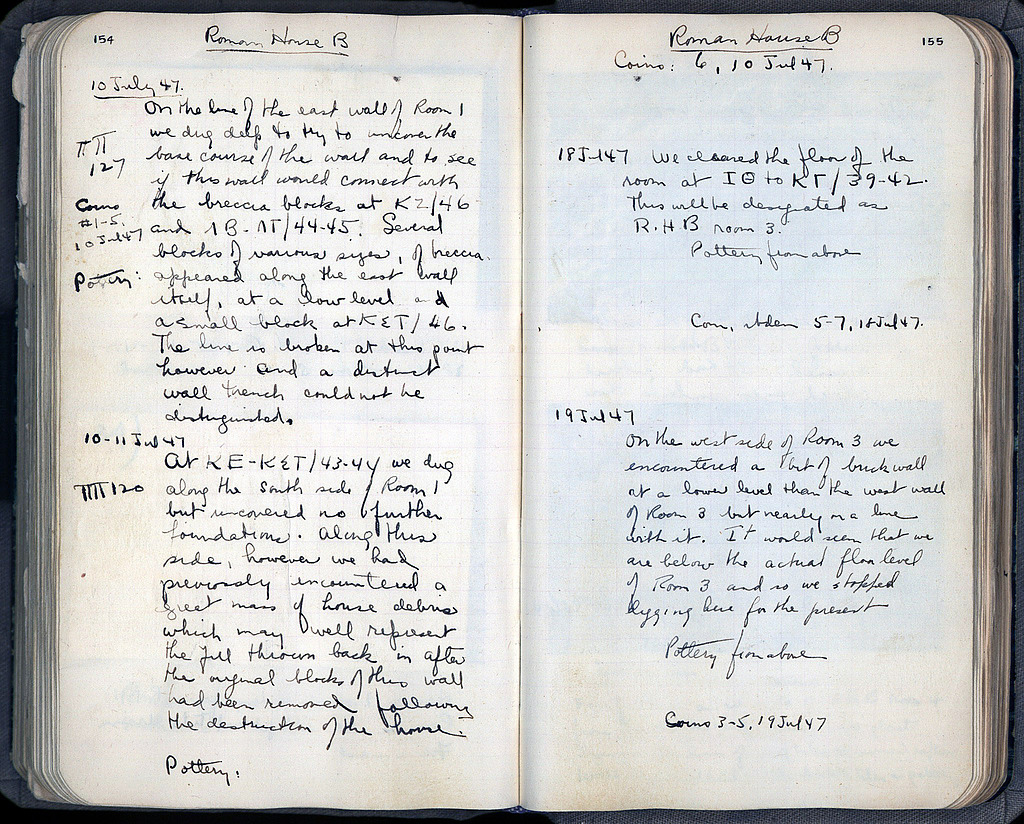 154
Roman House B
10 July 47.
On the line of the east wall of Room 1
we dug deep to try to uncover the
ΠΠ
127
base course of the wall and to see
if this wall would connect with
Coins
#1-5,
10 Jul 47
the breccia blocks at KZ/46
and ΛB-ΛΓ/44-45. Several
blocks of various sizes, of breccia
Pottery:
appeared along the east wall
itself, at a low level and
a small block at
/46.
The line is broken at this point
however and a distinct
wall trench could not be
distinguished.
10-11 Jul 47
At
/43-44 we dug
120
along the south side of Room 1
but uncovered no further
foundations. Along this
side, however we had
previously encountered a
great mass of house debris
which may well represent
the fill thrown back in after
the original blocks of this wall
had been removed following
the destruction of the house.
Pottery:
155
Roman House B
Coins: 6, 10 Jul 47.
18 Jul 47 We cleared the floor of the
room at IΘ to KΓ/39-42.
This will be designated as
R.H.B room 3.
Pottery from above
5-7, 18 Jul 47.
19 Jul 47
On the west side of Room 3 we
encountered a bit of brick wall
at a lower level than the west wall
of Room 3 but nearly on a line
with it. It would seem that we
are below the actual floor level
of Room 3 and so we stopped
digging here for the present
Pottery from above
Coins 3-5, 19 Jul 47